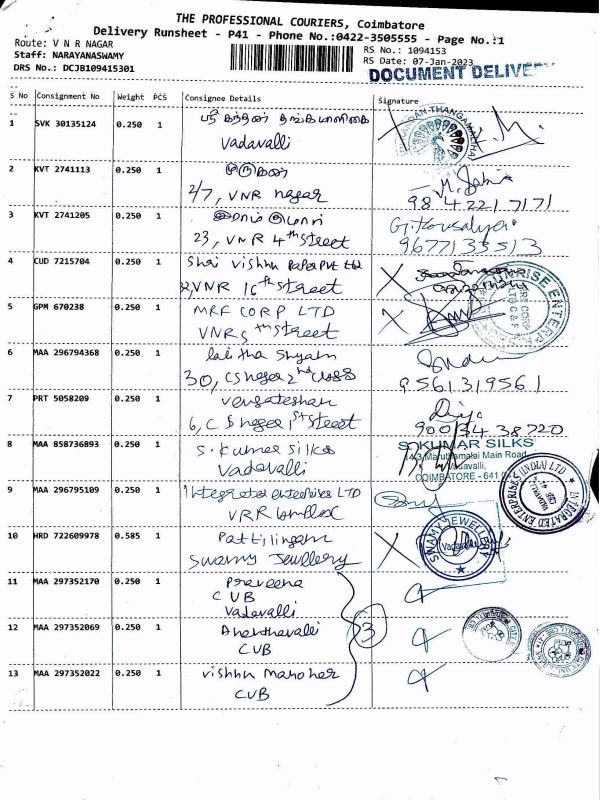 THE PROFESSIONAL COURIERS, Coimbatore
Delivery Runsheet - P41 - Phone No.:0422-3505555 - Page No.:1
Route: V N R NAGAR
Staff: NARAYANASWAMY
DRS No.: DCJB109415301
RS No.: 1094153
RS Date: 07-Jan-2023
DOCUMENT DELIVE
S No Consignment No Weight PCS Consignee Details Signature
1 SVK 30135124 0.250 1
Vadavalli
2 KVT 2741113 0.250 1 முருகன்
2/7, VNR nagar
98 42217171
3 KVT 2741205 0.250 1
23, VNR 4th Street
9677133513
4 CUD 7215704 0.250 1 Shri Vishnu Paper Pvt Ltd
VNR 16th Street
SUNRISE ENTERP
5 GPM 670238 0.250 1 MRF CORP LTD
VNR 5th Street
6 MAA 296794368 0.250 1 Lalitha Shyam
30, CS nagar 2nd cross
9561319561
7 PRT 5058209 0.250 1 Vengateshan
6, C S nagar 1st Street
8 MAA 858736893 0.250 1 S. Kumar Silks
Vadavalli
S. KUMAR SILKS
Maruthamalai Main Road
Vadavalli,
COIMBATORE - 641 0
9 MAA 296795109 0.250 1 Integrated enterprises LTD
INTEGRATED ENTERPRISES (INDIA) LTD
10 HRD 722609978 0.585 1 Pattilingam
Swamy Jewellery
SWAMY JEWELLERY
Vadavalli
11 MAA 297352170 0.250 1 Praveena
CUB
Vadavalli
12 MAA 297352069 0.250 1 Ananthavalli
CUB
3
13 MAA 297352022 0.250 1 Vishnu Manohar
CUB